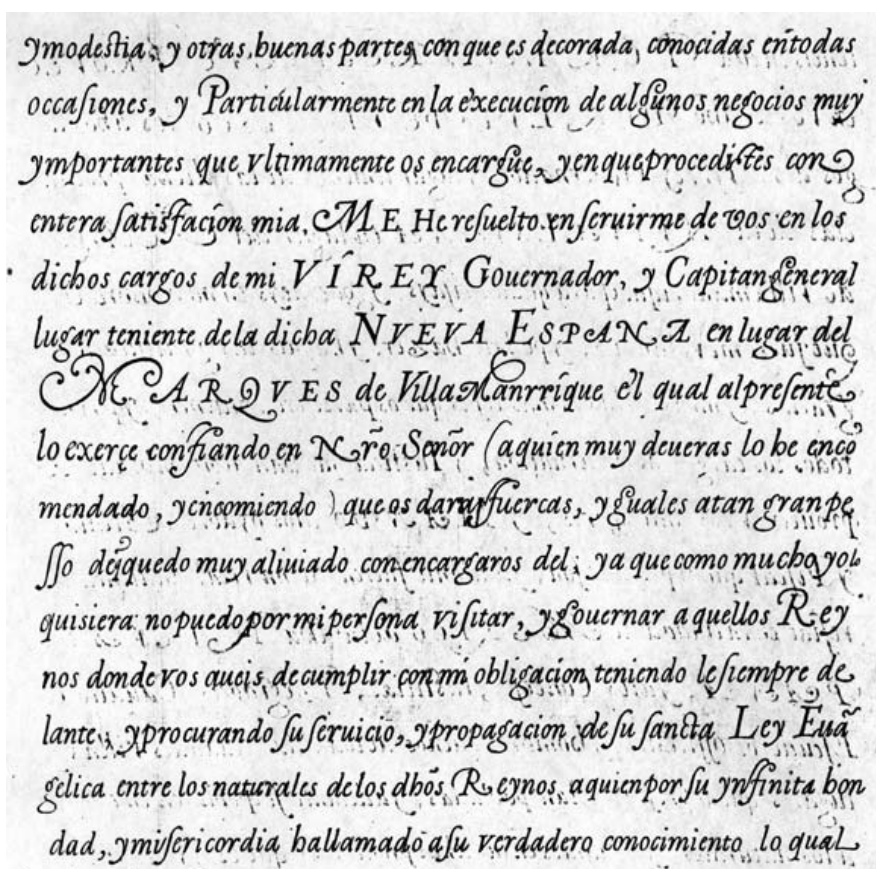 ymodestia, y otras buenas partes con que es decorada, conocidas entodas
occasiones, y Particularmente en la execucion de algunos negocios muy
ymportantes que vltimamente os encargue, y en que procedistes con
entera satisfacion mia. ME He resuelto en seruirme de vos en los
dichos cargos de mi VIREY Gouernador, y Capitan general
lugar teniente de la dicha NVEVA ESPANA en lugar del
MARQVES de Villa Manrrique el qual al presente
lo exerçe confiando en Nr̃o Señor (a quien muy deueras lo he encõ
mendado, y encomiendo) que os dara fuercas, yguales a tan gran pe
sso deq̃ quedo muy aliuiado con encargaros del; ya que como mucho yo
quisiera no puedo por mi persona visitar, y gouernar aquellos Rey
nos donde vos aueis de cumplir con mi obligacion teniendo le siempre de
lante, y procurando su seruicio, y propagacion de su sancta Ley Euã
gelica entre los naturales de los dhõs Reynos, a quien por su ynfinita bon
dad, y misericordia ha llamado a su verdadero conocimiento lo qual